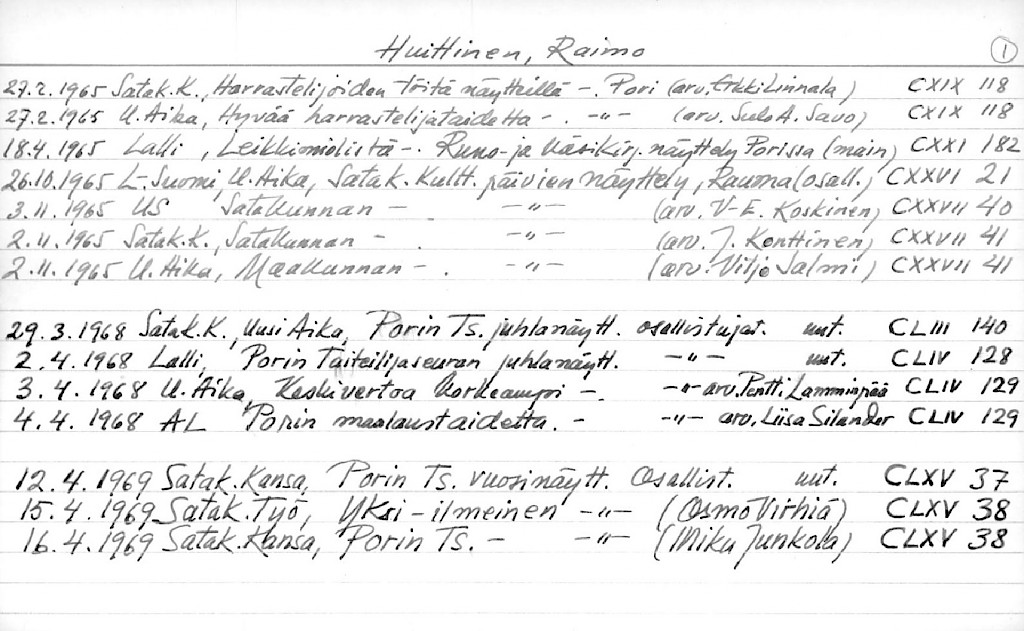 Huittinen, Raimo
1
27.2.1965 Satak.K., Harrastelijoiden töitä näytteillä -. Pori (arv. Erkki Linnala) CXIX 118
27.2.1965 U.Aika, Hyvää harrastelijataidetta -. -"- (arv. Sulo A. Savo) CXIX 118
18.4.1965 Lalli, Leikkimielistä -. Runo- ja käsikirj. näyttely Porissa (main) CXXI 182
26.10.1965 L-Suomi, U.Aika, Satak. Kultt. päivien näyttely, Rauma (osall.) CXXVI 21
3.11.1965 US Satakunnan - -"- (arv. V-E. Koskinen) CXXVII 40
2.11.1965 Satak.K., Satakunnan - . -"- (arv. J. Konttinen) CXXVII 41
2.11.1965 U.Aika, Maakunnan - . -"- (arv. Viljo Salmi) CXXVII 41
29.3.1968 Satak.K., Uusi Aika, Porin Ts. juhlanäytt. osallistujat. uut. CLIII 140
2.4.1968 Lalli, Porin Taiteilijaseuran juhlanäytt. -"- uut. CLIV 128
3.4.1968 U.Aika, Keskivertoa korkeampi -. -"- arv. Pentti Lamminpää CLIV 129
4.4.1968 AL Porin maalaustaidetta. - -"- arv. Liisa Silander CLIV 129
12.4.1969 Satak.Kansa, Porin Ts. vuosinäytt. Osallist. uut. CLXV 37
15.4.1969 Satak.Työ, Yksi-ilmeinen -"- (Osmo Virhiä) CLXV 38
16.4.1969 Satak.Kansa, Porin Ts. - -"- (Miku Junkola) CLXV 38